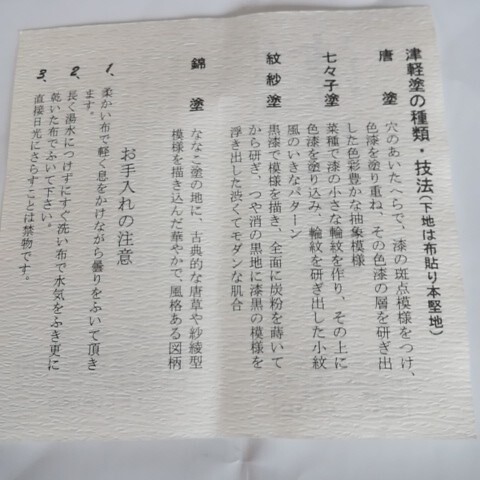 津軽塗の種類・技法(下地は布貼り本堅地)
唐塗
穴のあいたへらで、漆の斑点模様をつけ、
色漆を塗り重ね、その色漆の層を研ぎ出
した色彩豊かな抽象模様
七々子塗
菜種で漆の小さな輪紋を作り、その上に
色漆を塗り込み、輪紋を研ぎ出した小紋
風のいきなパターン
紋紗塗
黒漆で模様を描き、全面に炭粉を蒔いて
から研ぎ、つや消の黒地に漆黒の模様を
浮き出した渋くてモダンな肌合
錦塗
ななこ塗の地に、古典的な唐草や紗綾型
模様を描き込んだ華やかで、風格ある図柄
お手入れの注意
1、柔かい布で軽く息をかけながら曇りをふいて頂き
ます。
2、長く湯水につけずにすぐ洗い布で水気をふき更に
乾いた布でふいて下さい。
3、直接日光にさらすことは禁物です。